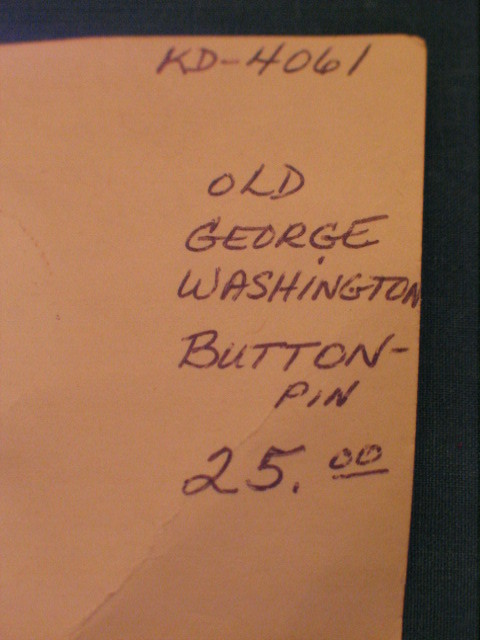 KD-4061
OLD
GEORGE
WASHINGTON
BUTTON-
PIN
25.00